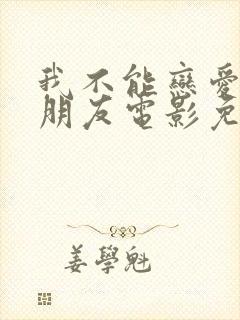 我不能戀愛
朋友電影免
姜學魁